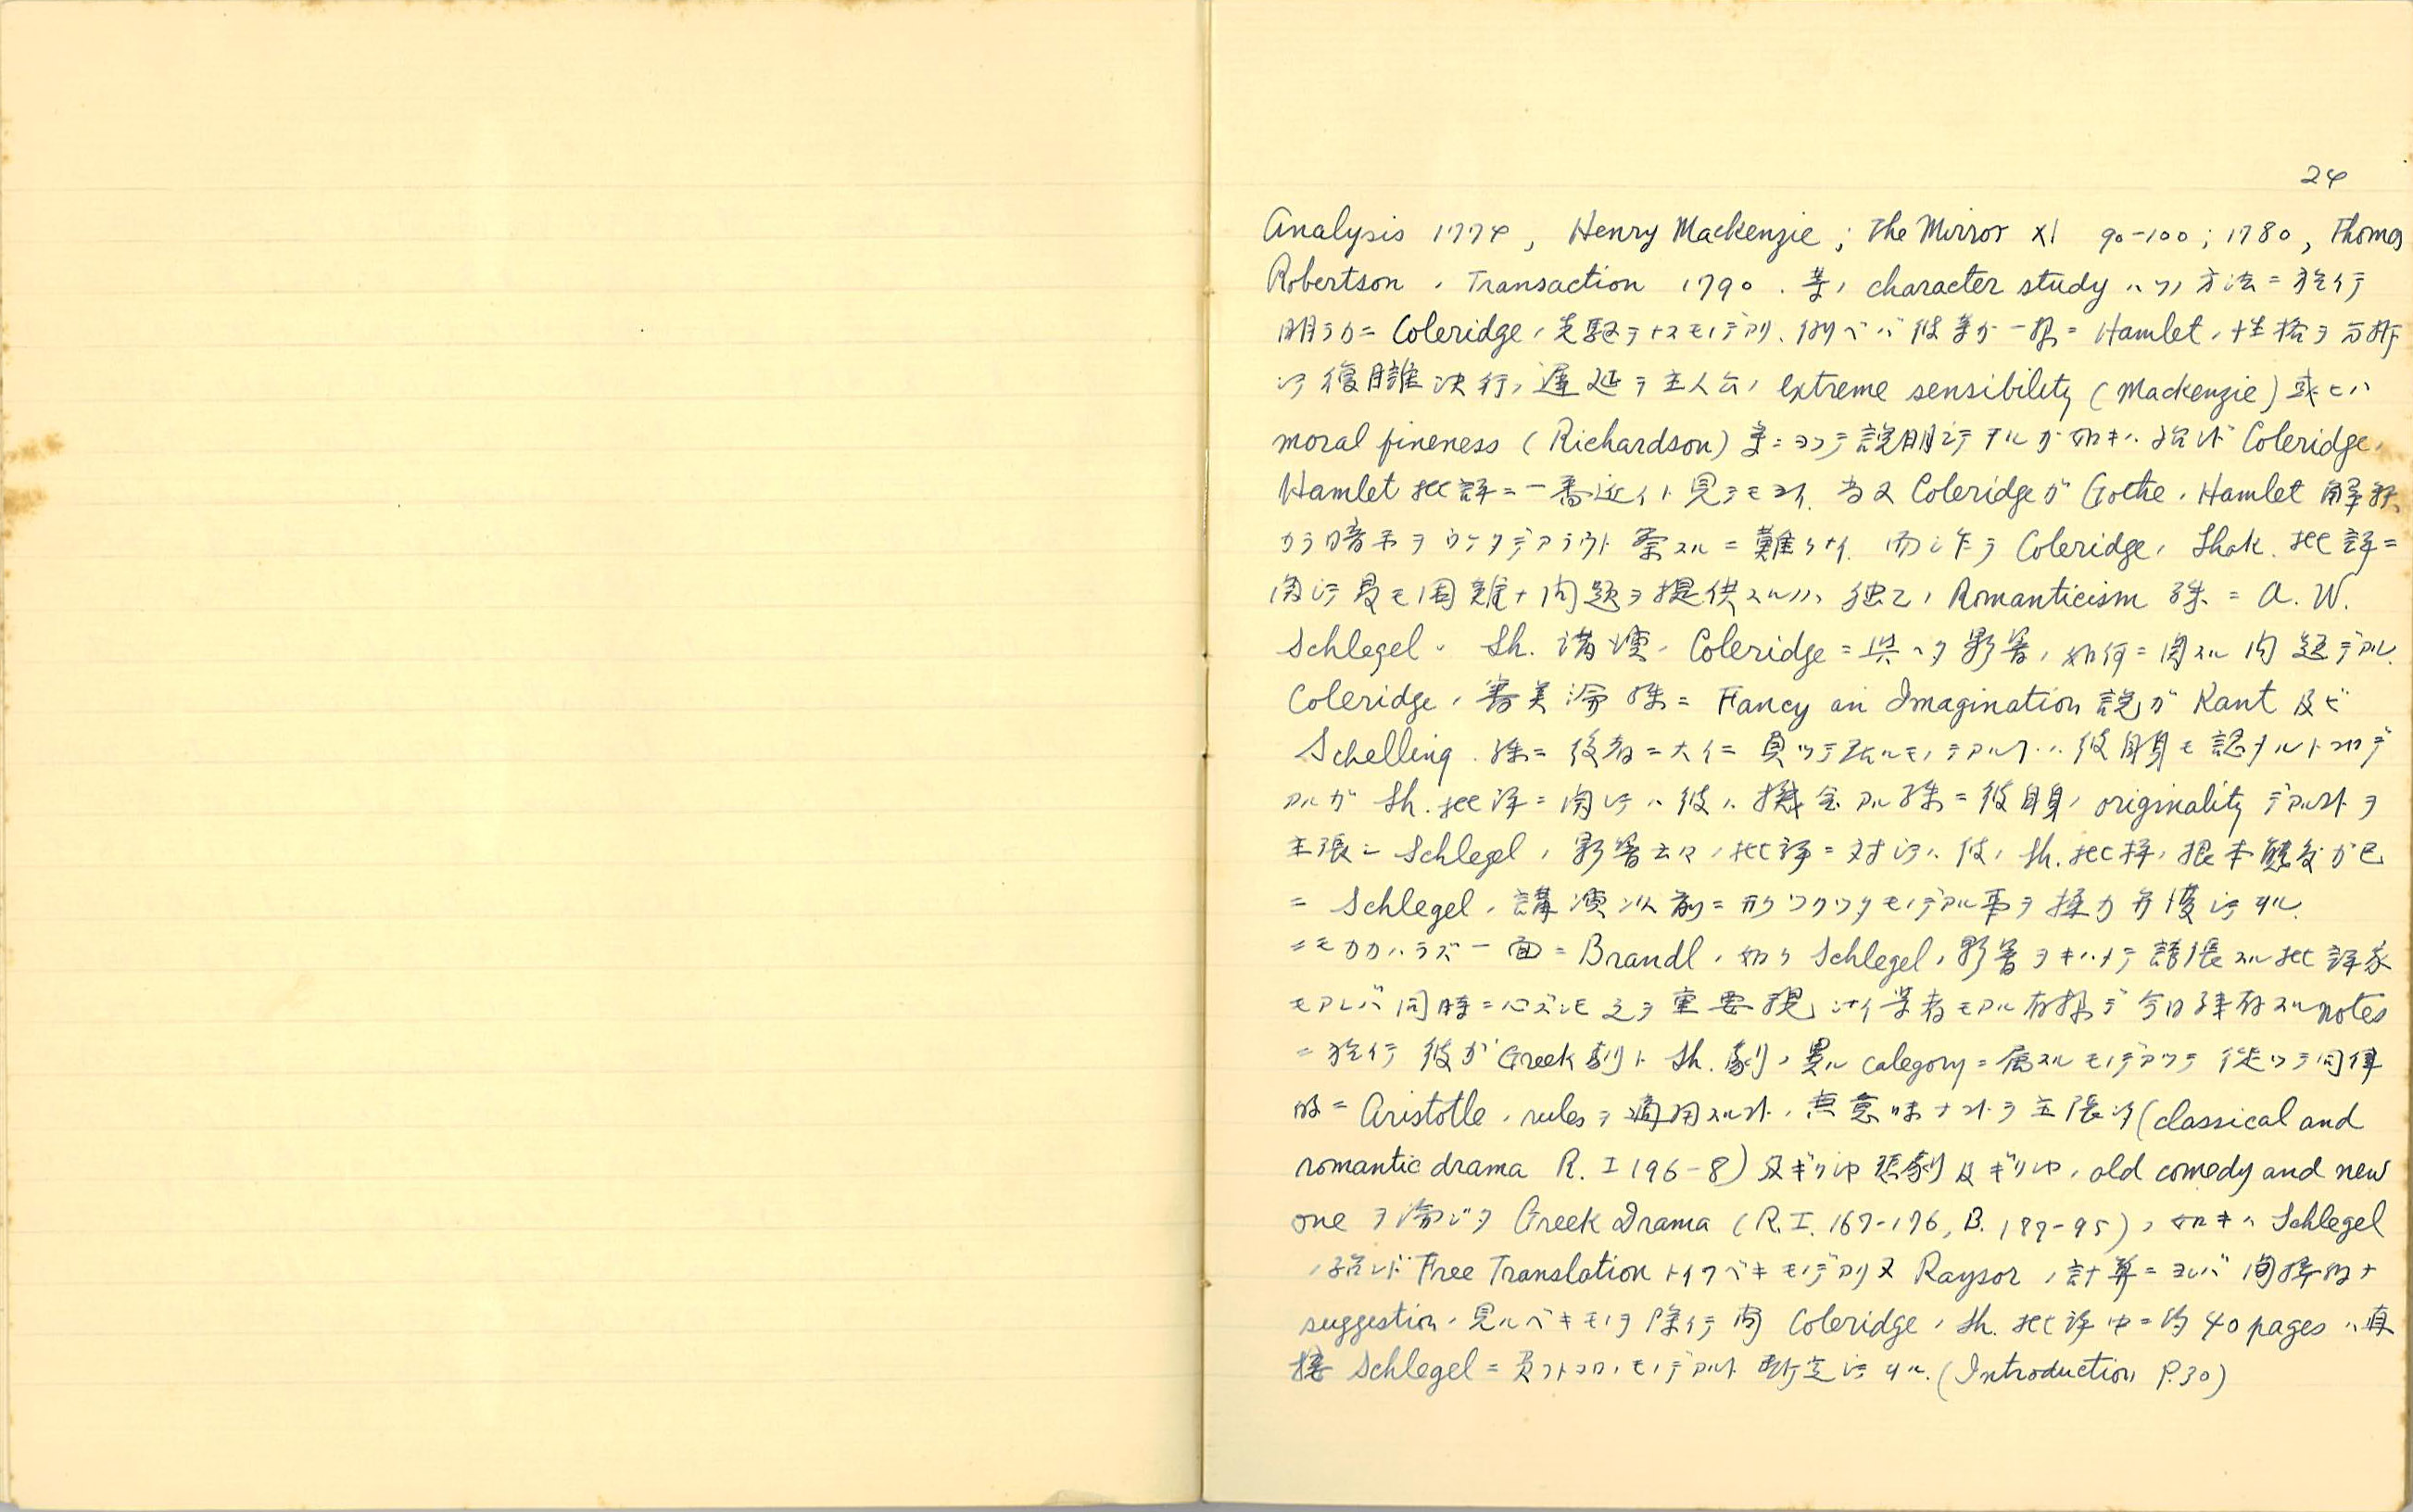 24
Analysis 1774, Henry Mackenzie; The Mirror XI 90-100; 1780, Thomas
Robertson, Transaction 1790. 等ノ character study ハソノ方法ニ於イテ
明ラカニ Coleridge ノ先駆ヲナスモノデアリ、例ヘバ彼等ガ一様ニ Hamlet ノ性格ヲ分析
シテ復讐決行ノ遅延ヲ主人公ノ extreme sensibility (Mackenzie) 或ヒハ
moral fineness (Richardson) 等ニヨツテ説明シテヰルガ如キハ殆ンド Coleridge ノ
Hamlet 批評ニ一番近イト見テモヨイ。尚又 Coleridge ガ Gothe ノ Hamlet 解釈
カラ暗示ヲウケタデアラウト察スルニ難クナイ。而シ乍ラ Coleridge ノ Shak. 批評ニ
関シテ最モ困難ナ問題ヲ提供スルノハ独乙ノ Romanticism 殊ニ A. W.
Schlegel ノ Sh. 講演ノ Coleridge ニ与ヘタ影響ノ如何ニ関スル問題デアル。
Coleridge ノ審美論殊ニ Fancy an Imagination 説ガ Kant 及ビ
Schelling 殊ニ後者ニ大イニ負ツテ居ルモノデアル事ハ彼自身モ認メルトコロデ
アルガ Sh. 批評ニ関シテハ彼ハ機会アル毎ニ彼自身ノ originality デアルコトヲ
主張シ Schlegel ノ影響云々ノ批評ニ対シテハ彼ノ Sh. 批評ノ根本態度ガ已
ニ Schlegel ノ講演以前ニ形ヅクツタモノデアル事ヲ極力弁護シテヰル。
ニモカカハラズ一面ニ Brandl ノ如ク Schlegel ノ影響ヲキハメテ誇張スル批評家
モアレバ同時ニ必ズシモ之ヲ重要視シナイ学者モアル有様デ今日残存スル notes
ニ於イテ彼ガ Greek 劇ト Sh. 劇ノ異ル category ニ属スルモノデアツテ従ツテ同律
的ニ Aristotle ノ rules ヲ適用スルコトノ無意味ナコトヲ主張シタ (classical and
romantic drama R. I 196-8) 又ギリシヤ悲劇及ギリシヤノ old comedy and new
one ヲ論ジタ Greek Drama (R. I. 167-176, B. 187-95) ノ如キハ Schlegel
ノ殆ンド Free Translation トイフベキモノデアリ又 Raysor ノ計算ニヨレバ間接的ナ
suggestion ト見ルベキモノヲ除イテ尚 Coleridge ノ Sh. 批評中ニ約 40 pages ハ直
接 Schlegel ニ負フトコロノモノデアルト断定シテヰル。(Introduction P.30)